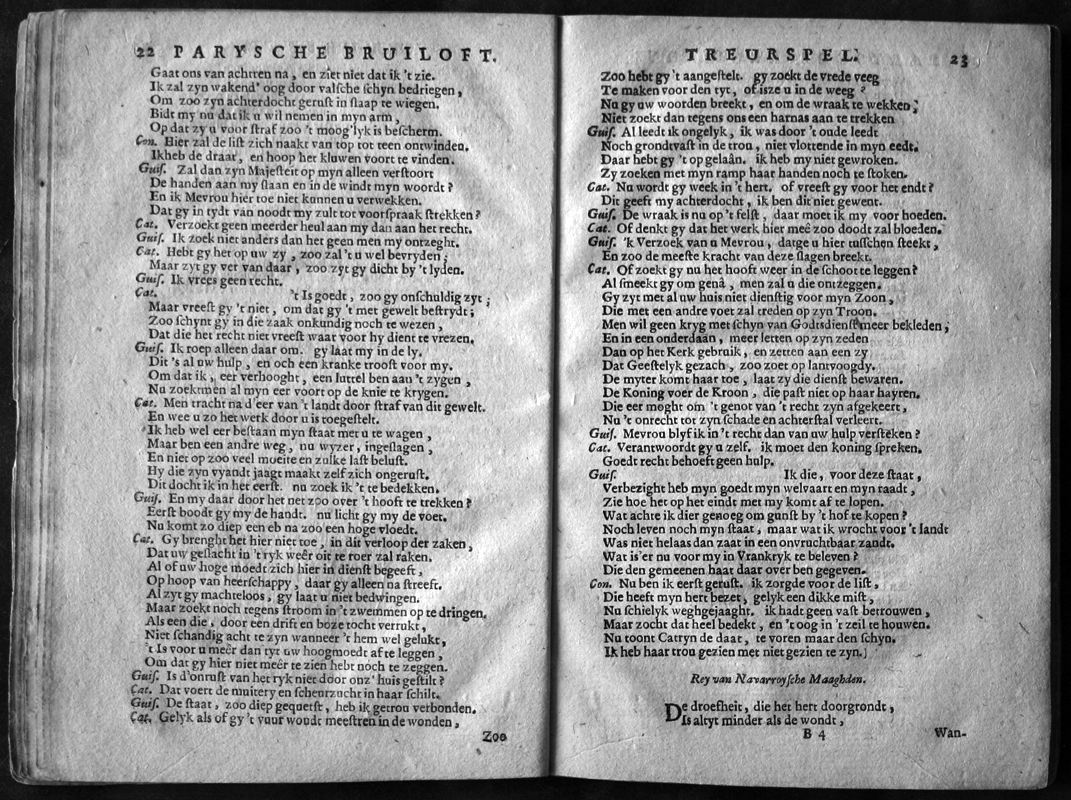 22 PARYSCHE BRUILOFT.
Gaat ons van achtren na, en ziet niet dat ik 't zie.
Ik zal zyn wakend' oog door valſche ſchyn bedriegen,
Om zoo zyn achterdocht geruſt in ſlaap te wiegen.
Bidt my nu dat ik u wil nemen in myn arm,
Op dat zy u voor ſtraf zoo 't moog'lyk is beſcherm.
Con. Hier zal de liſt zich naakt van top tot teen ontwinden.
Ikheb de draat, en hoop het kluwen voort te vinden.
Guiſ. Zal dan zyn Majeſteit op myn alleen verſtoort
De handen aan my ſlaan en in de windt myn woordt?
En ik Mevrou hier toe niet kunnen u verwekken.
Dat gy in tydt van noodt my zult tot voorſpraak ſtrekken?
Cat. Verzoekt geen meerder heul aan my dan aan het recht.
Guiſ. Ik zoek niet anders dan het geen men my ontzeght.
Cat. Hebt gy het op uw zy, zoo zal 't u wel bevryden;
Maar zyt gy ver van daar, zoo zyt gy dicht by 't lyden.
Guiſ. Ik vrees geen recht.
Cat. 't Is goedt, zoo gy onſchuldig zyt;
Maar vreeſt gy 't niet, om dat gy 't met gewelt beſtrydt;
Zoo ſchynt gy in die zaak onkundig noch te wezen,
Dat die het recht niet vreeſt waar voor hy dient te vrezen.
Guiſ. Ik roep alleen daar om. gy laat my in de ly.
Dit 's al uw hulp, en och een kranke trooſt voor my.
Om dat ik, eer verhooght, een luttel ben aan 't zygen,
Nu zoektmen al myn eer voort op de knie te krygen.
Cat. Men tracht na d'eer van 't landt door ſtraf van dit gewelt.
En wee u zo het werk door u is toegeſtelt.
'Ik heb wel eer beſtaan myn ſtaat met u te wagen,
Maar ben een andre weg, nu wyzer, ingeſlagen,
En niet op zoo veel moeite en zulke laſt beluſt.
Hy die zyn vyandt jaagt maakt zelf zich ongeruſt.
Dit docht ik in het eerſt. nu zoek ik 't te bedekken.
Guiſ. En my daar door het net zoo over 't hooft te trekken?
Eerſt boodt gy my de handt. nu licht gy my de voet.
Nu komt zo diep een eb na zoo een hoge vloedt.
Cat. Gy brenght het hier niet toe, in dit verloop der zaken,
Dat uw geſlacht in 't ryk weêr oit te roer zal raken.
Al of uw hoge moedt zich hier in dienſt begeeft,
Op hoop van heerſchappy, daar gy alleen na ſtreeft.
Al zyt gy machteloos, gy laat u niet bedwingen.
Maar zoekt noch tegens ſtroom in 't zwemmen op te dringen.
Als een die, door een drift en boze tocht verrukt,
Niet ſchandig acht te zyn wanneer 't hem wel gelukt,
't Is voor u meêr dan tyt uw hoogmoedt af te leggen,
Om dat gy hier niet meêr te zien hebt noch te zeggen.
Guiſ. Is d'onruſt van het ryk niet door onz' huis geſtilt?
Cat. Dat voert de muitery en ſcheurzucht in haar ſchilt.
Guiſ. De ſtaat, zoo diep gequetſt, heb ik getrou verbonden.
Cat. Gelyk als of gy 't vuur woudt meeſtren in de wonden,
Zoo
TREURSPEL. 23
Zoo hebt gy 't aangeſtelt. gy zoekt de vrede veeg
Te maken voor den tyt, of isze u in de weeg?
Nu gy uw woorden breekt, en om de wraak te wekken,
Niet zoekt dan tegens ons een harnas aan te trekken
Guiſ. Al leedt ik ongelyk, ik was door 't oude leedt
Noch grondtvaſt in de trou, niet vlottende in myn eedt.
Daar hebt gy 't op gelaân. ik heb my niet gewroken.
Zy zoeken met myn ramp haar handen noch te ſtoken.
Cat. Nu wordt gy week in 't hert. of vreeſt gy voor het endt?
Dit geeft my achterdocht, ik ben dit niet gewent.
Guiſ. De wraak is nu op 't felſt, daar moet ik my voor hoeden.
Cat. Of denkt gy dat het werk hier meê zoo doodt zal bloeden.
Guiſ. 'k Verzoek van u Mevrou, datge u hier tuſſchen ſteekt,
En zoo de meeſte kracht van deze ſlagen breekt.
Cat. Of zoekt gy nu het hooft weer in de ſchoot te leggen?
Al ſmeekt gy om genâ, men zal u die ontzeggen.
Gy zyt met al uw huis niet dienſtig voor myn Zoon,
Die met een andre voet zal treden op zyn Troon.
Men wil geen kryg met ſchyn van Godtsdienſt meer bekleden;
En in een onderdaan, meer letten op zyn zeden
Dan op het Kerk gebruik, en zetten aan een zy
Dat Geeſtelyk gezach, zoo zoet op lantvoogdy.
De myter komt haar toe, laat zy die dienſt bewaren.
De Koning voer de Kroon, die paſt niet op haar hayren.
Die eer moght om 't genot van 't recht zyn afgekeert,
Nu 't onrecht tot zyn ſchade en achterſtal verleert.
Guiſ. Mevrou blyf ik in 't recht dan van uw hulp verſteken?
Cat. Verantwoordt gy u zelf. ik moet den koning ſpreken.
Goedt recht behoeft geen hulp.
Guiſ. Ik die, voor deze ſtaat,
Verbezight heb myn goedt myn welvaart en myn raadt,
Zie hoe het op het eindt met my komt af te lopen.
Wat achte ik dier genoeg om gunſt by 't hof te kopen?
Noch leven noch myn ſtaat, maar wat ik wrocht voor 't landt
Was niet helaas dan zaat in een onvruchtbaar zandt.
Wat is'er nu voor my in Vrankryk te beleven?
Die den gemeenen haat daar over ben gegeven.
Con. Nu ben ik eerſt geruſt. ik zorgde voor de liſt,
Die heeft myn hert bezet, gelyk een dikke miſt,
Nu ſchielyk weghgejaaght. ik hadt geen vaſt betrouwen,
Maar zocht dat heel bedekt, en 't oog in 't zeil te houwen.
Nu toont Catryn de daat, te voren maar den ſchyn.
Ik heb haar trou gezien met niet gezien te zyn.
Rey van Navarroyſche Maaghden.
De droefheit, die het hert doorgrondt,
Is altyt minder als de wondt,
B 4 Wan-